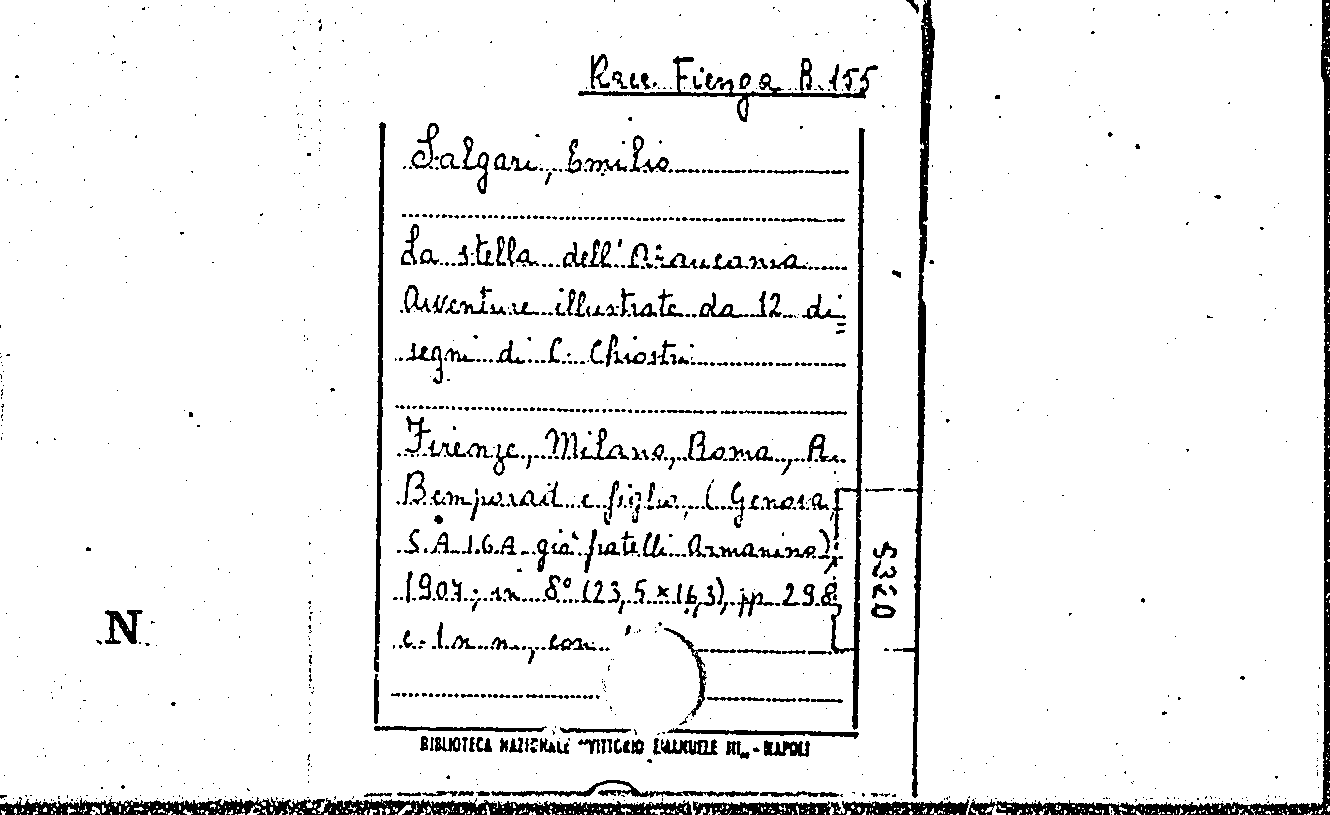 Racc. Fienga B. 155
Salgari, Emilio
La stella dell'Araucania
Avventure illustrate da 12 di=
segni di C. Chiostri
Firenze, Milano, Roma, A.
Bemporad e figlio, (Genova,
S.A.I.G.A già fratelli Armanino),
1907; in 8° (23,5 x 16,3), pp 298
c. 1 n n, con
5320
N
BIBLIOTECA NAZIONALE "VITTORIO EMANUELE III„ - NAPOLI